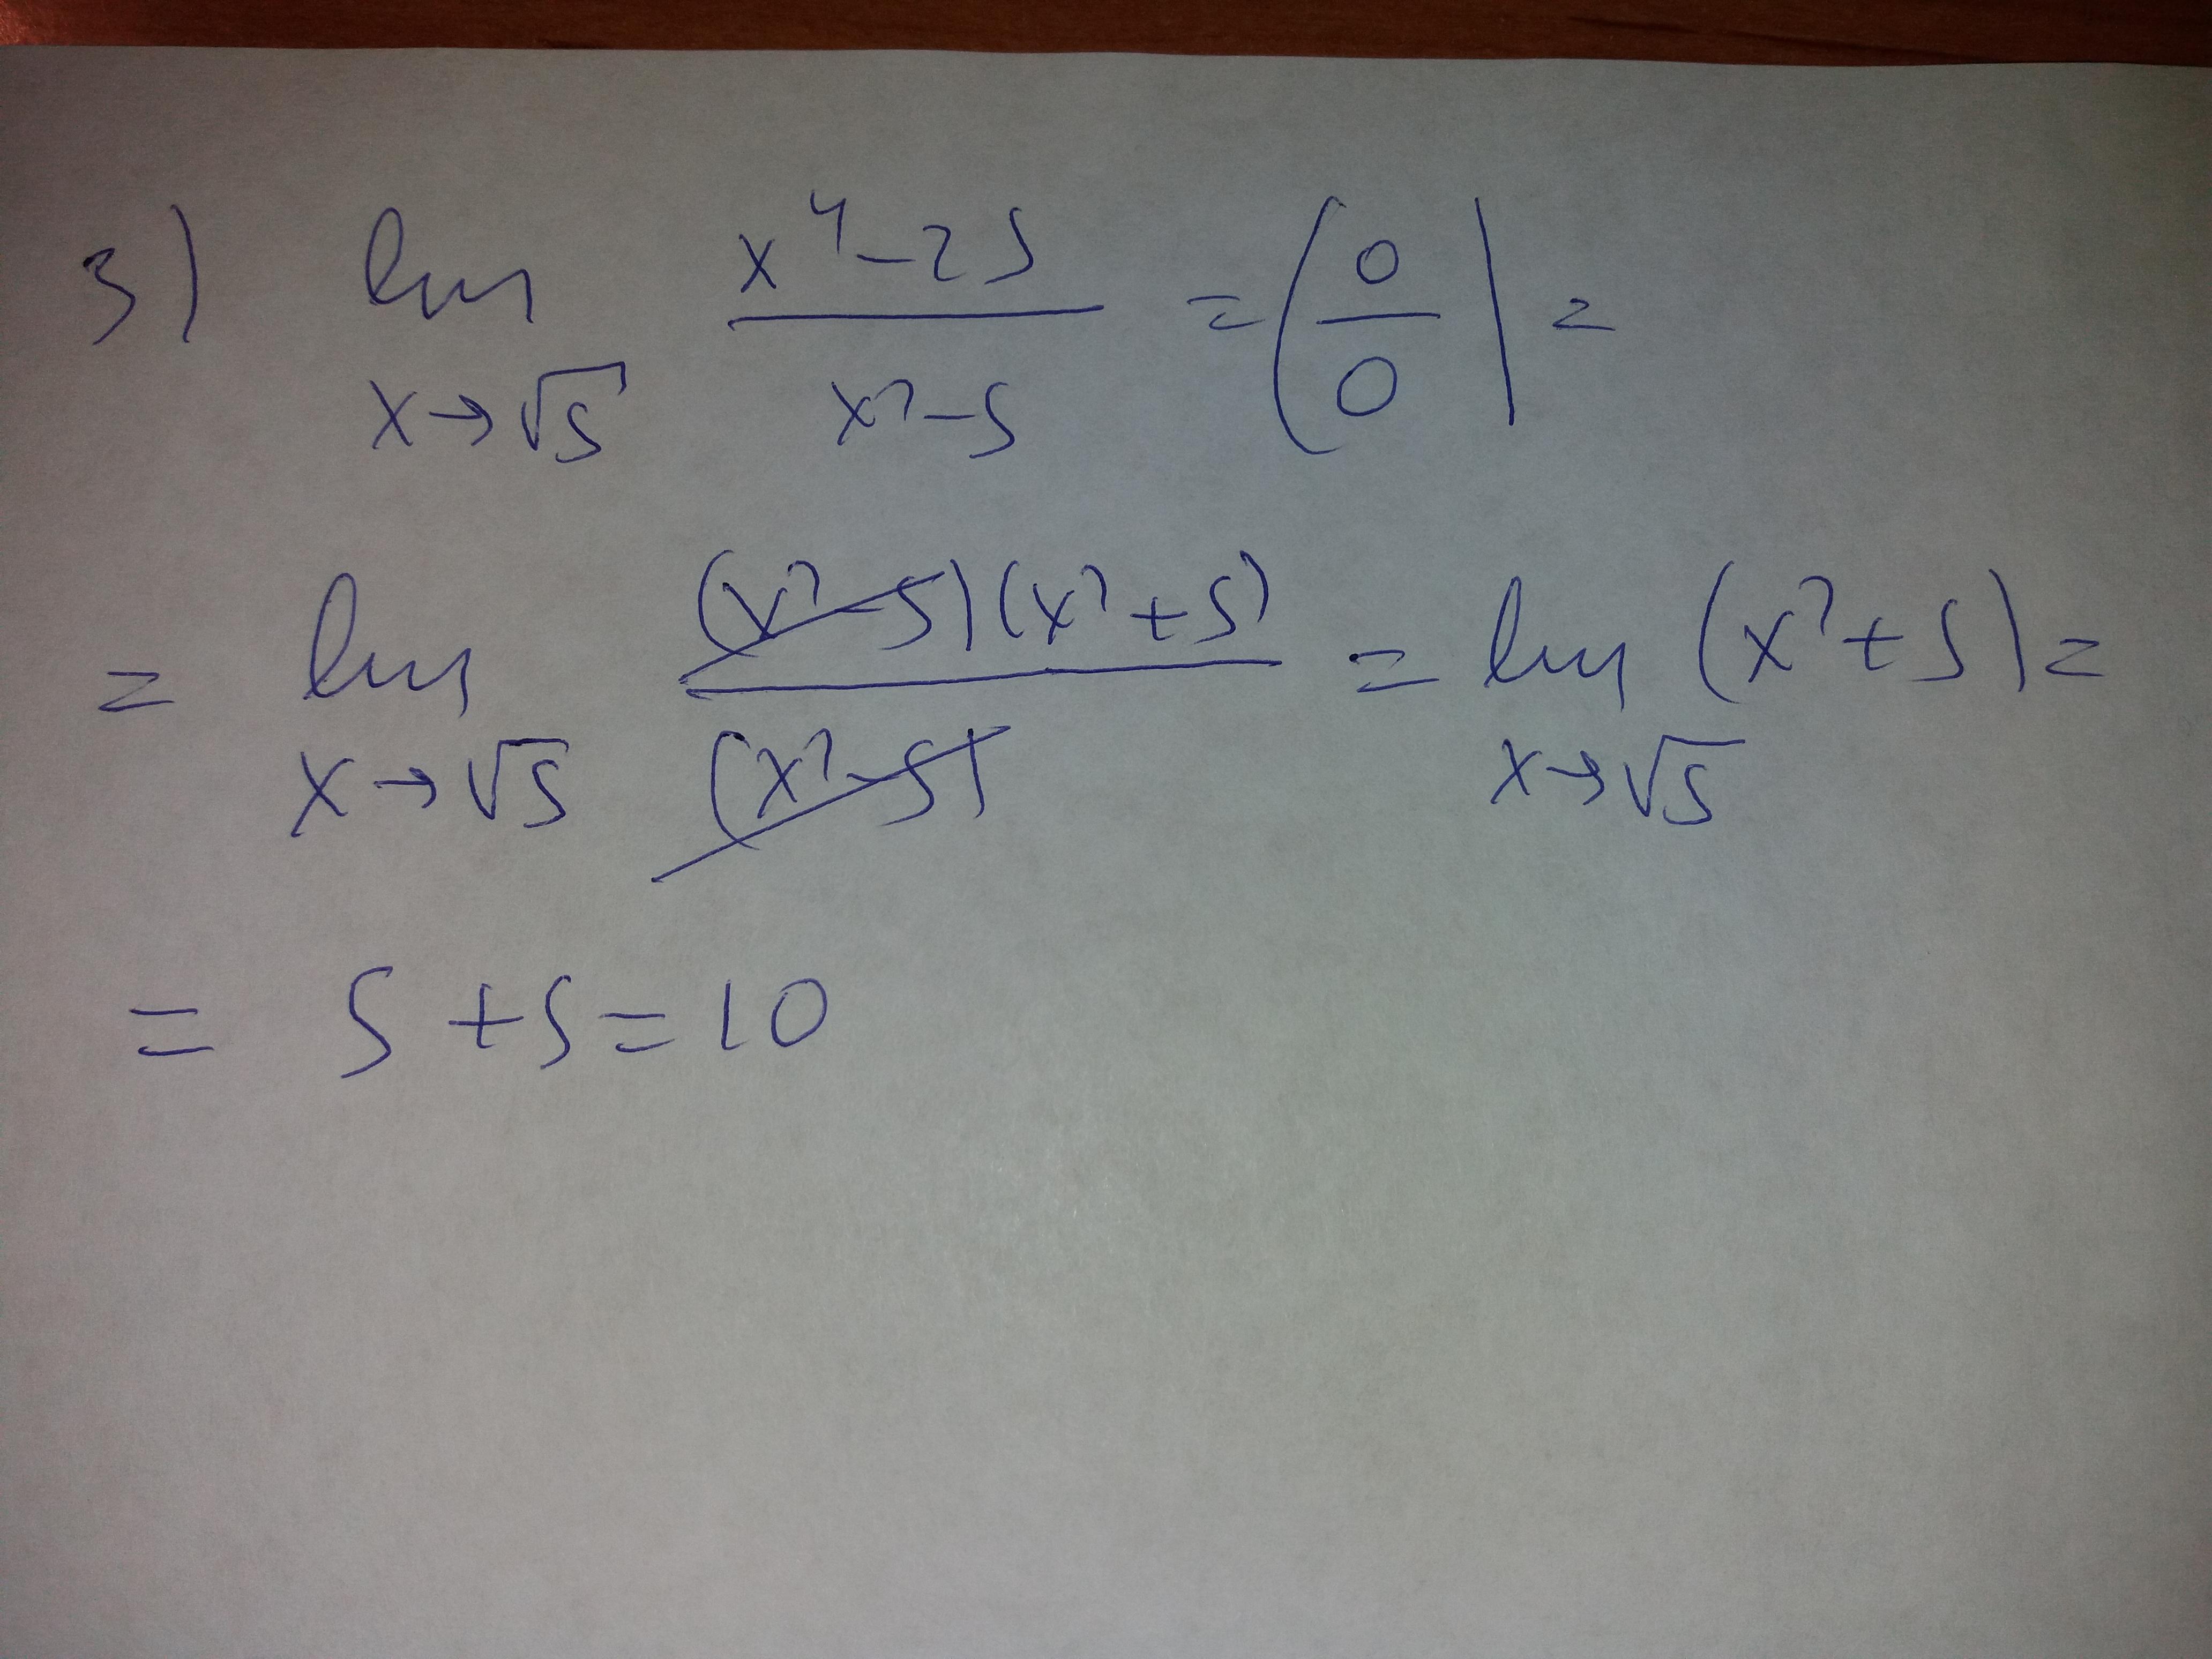 3) lim x→√5 (x⁴-25)/(x²-5) = (0/0) =
= lim x→√5 ((x²-5)(x²+5))/(x²-5) = lim x→√5 (x²+5) =
= 5+5=10